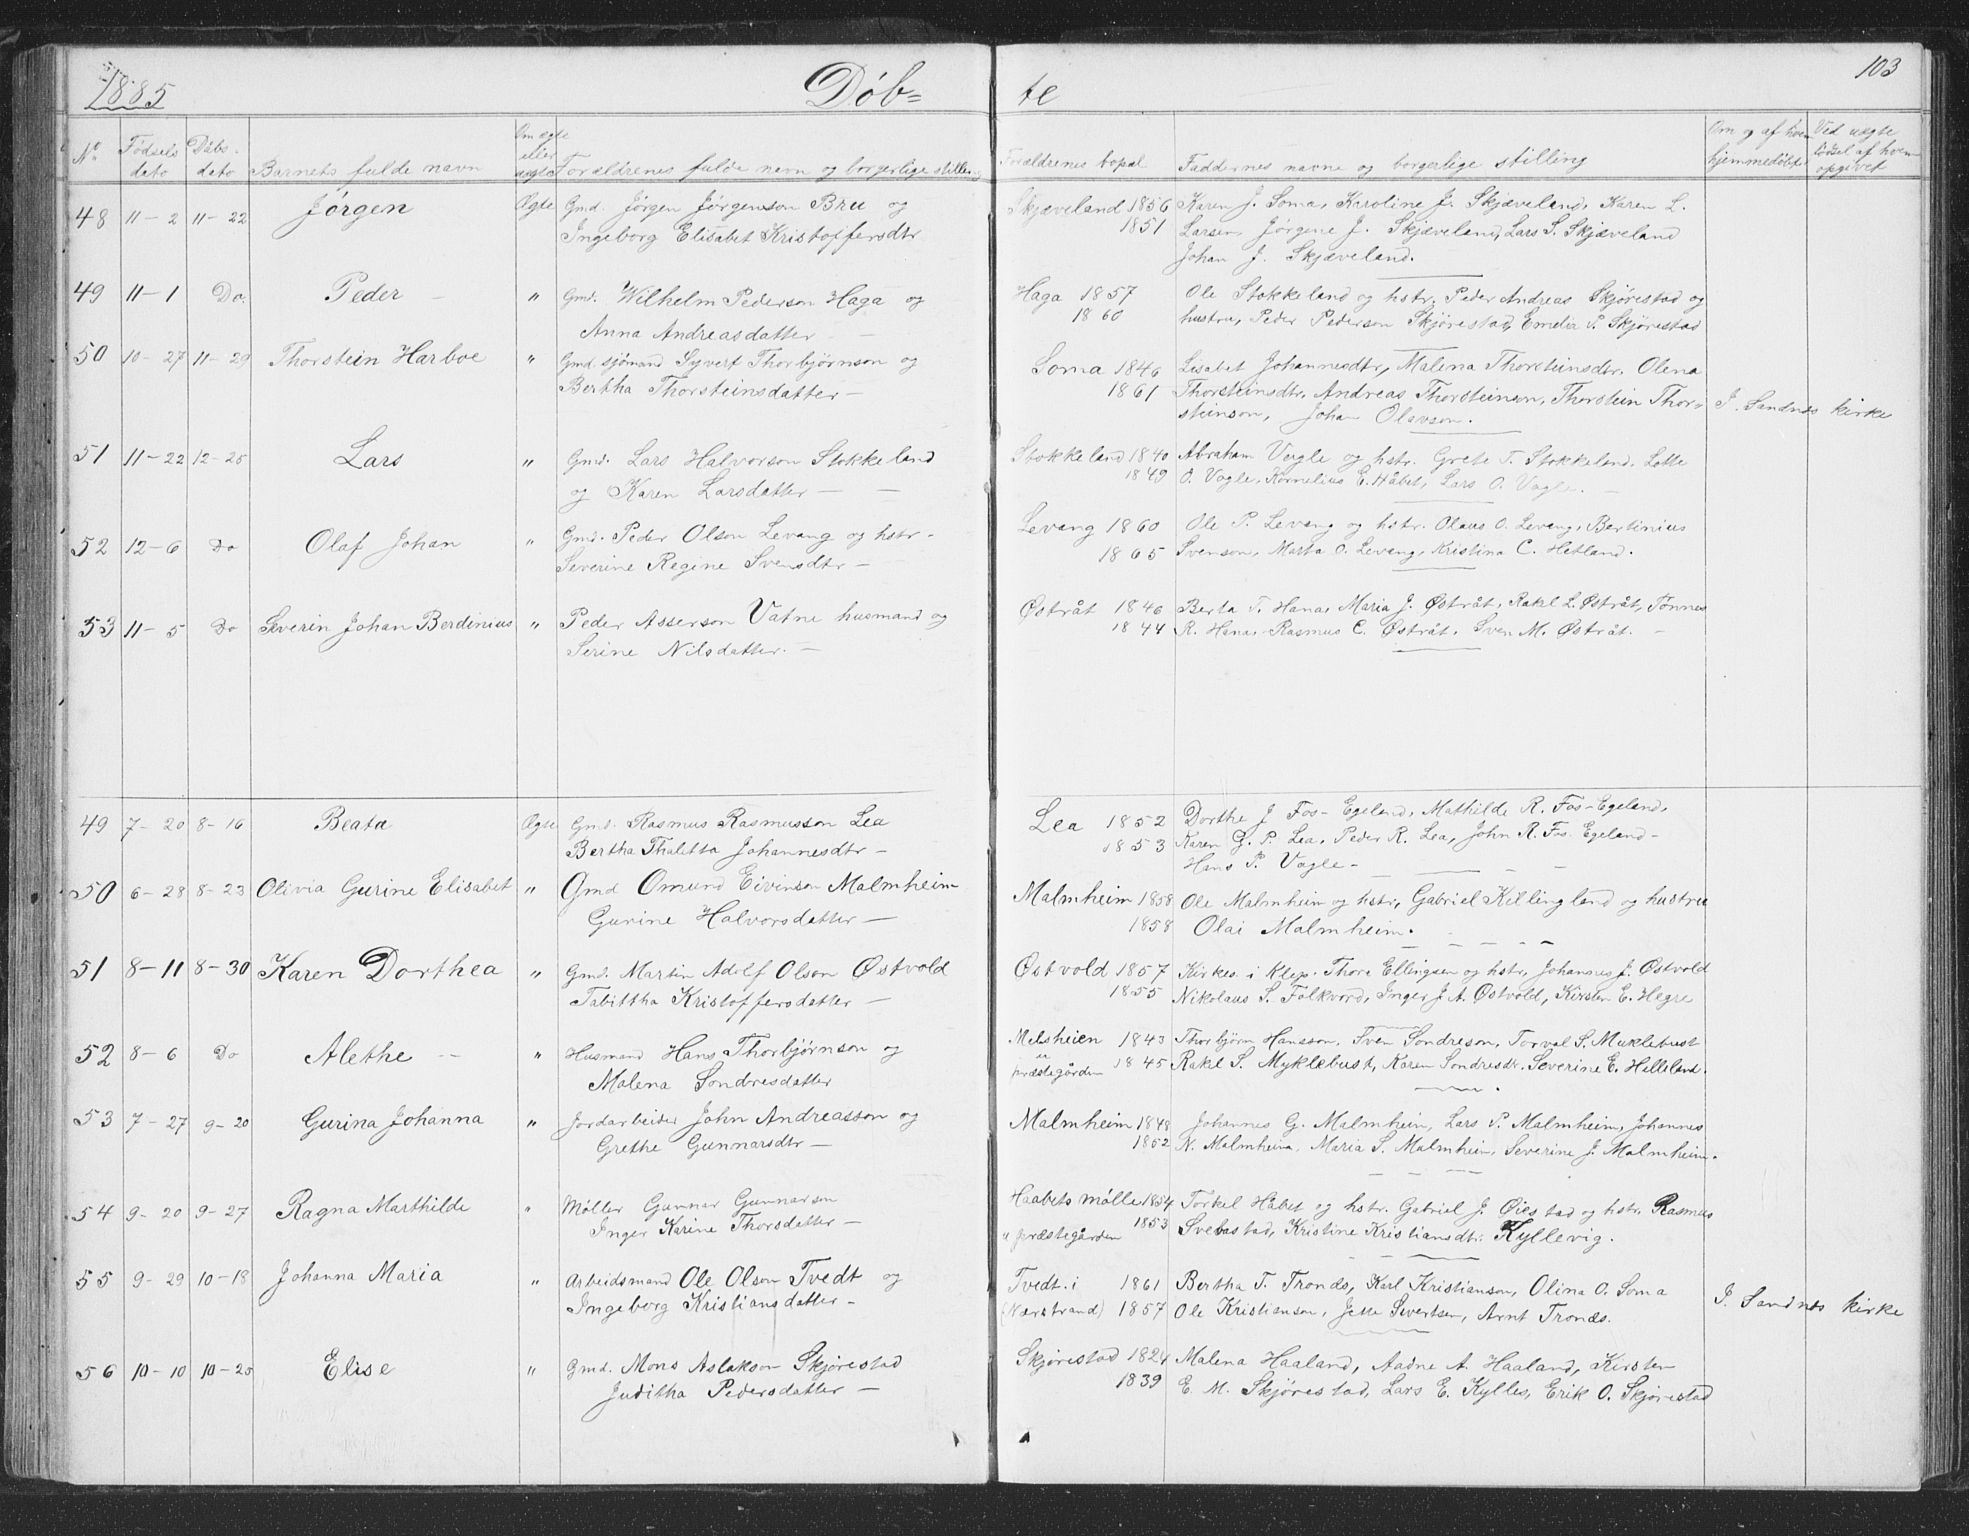 1885 Døb= te 103
No Fødsels dato Dåbs-dato Barnets fulde navn Om ægte eller uægte Forældrenes fulde navn og borgerlige stilling Forældrenes bopæl Faddernes navne og borgerlige stilling Om og af hvem hjemmedøbt Ved uægte fødsel af hvem opgivet
48 11-2 11-22 Jørgen Ægte Gmd. Jørgen Jørgenson Bru og Skjæveland 1856 Karen J. Soma, Karoline J. Skjæveland, Karen L.
Ingeborg Elisabet Kristoffersdtr 1851 Larsen, Jørgene J. Skjæveland, Lars S. Skjæveland
Johan J. Skjæveland.
49 11-1 Do. Peder - " Gmd. Wilhelm Pederson Haga og Haga 1857 Ole Stokkeland og hstr. Peder Andreas Skjørestad og
Anna Andreasdatter - 1860 hustru, Peder Pederson Skjørestad, Emelia P. Skjørestad
50 10-27 11-29 Thorstein Harboe " Gmd. sjømand Syvert Thorbjørnson og Soma 1846 Lisabet Johannesdtr, Malena Thorsteinsdtr. Olena
Bertha Thorsteinsdatter - 1861 Thorsteinsdtr, Andreas Thorsteinsen, Thorstein Thor- I Sandnes kirke
steinson, Johan Olavson.
51 11-22 12-25 Lars " Gmd. Lars Halvorson Stokkeland Stokkeland 1840 Abraham Vagle og hstr. Grete T. Stokkeland. Lotte
og Karen Larsdatter - - 1849 O. Vagle, Kornelius E. Håbet, Lars O. Vagle. -
52 12-6 Do Olaf Johan " Gmd. Peder Olson Levang og hstr - Levang 1860 Ole P. Levang og hstr. Olaus O. Levang, Bertinius
Severine Regine Svensdtr - 1865 Svenson, Marta O. Levang, Kristina C. Hetland.
53 11-5 Do Severin Johan Berdinius " Peder Asserson Vatne husmand og Østråt 1846 Berta T. Hana, Maria J. Østråt, Rakel L. Østråt, Tønnes
Serine Nilsdatter. - 1844 R. Hana, Rasmus C. Østråt. Sven M. Østråt. -
49 7-20 8-16 Beata Ægte Gmd. Rasmus Rasmusson Lea Lea 1852 Dorthe J Fos-Egeland, Mathilde R. Fos-Egeland,
Bertha Thalitta Johannesdtr - 1853 Karen G. P. Lea, Peder R. Lea, John R. Fos-Egeland-
Hans P. Vagle -
50 6-28 8-23 Olivia Gurine Elisabet " Gmd Omund Eivinson Malmheim Malmheim 1858 Ole Malmheim og hstr, Gabriel Kellingland og hustru
Gurine Halvorsdatter - 1858 Olai Malmheim.
51 8-11 8-30 Karen Dorthea " Gmd. Martin Adolf Olson Østvold Østvold 1857 Kirkes. i Klep. Thore Ellingsen og hstr, Johannes J. Østvold
Tabittha Kristoffersdatter - 1855 Nikolaus S. Folkvord, Inger J. A. Østvold, Kirsten E. Hegre
52 8-6 Do Alethe " Husmand Hans Thorbjørnson og Melsheien 1843 Thorbjørn Hansson, Sven Sondreson, Torval S. Muklebust
Malena Sondresdatter præstegården 1845 Rakel S. Myklebust, Karen Sondresdtr. Severine E. Helleland.
53 7-27 9-20 Gurina Johanna " Jordarbeider John Andreasson og Malmheim 1848 Johannes G. Malmheim, Lars P. Malmheim, Johannes
Grethe Gunnarsdtr - 1852 N. Malmheim, Maria S. Malmheim, Severine J. Malmheim.
54 9-20 9-27 Ragna Marthilde " Møller Gunnar Gunnarson Haabets mølle 1854 Torkel Håbet og hstr. Gabriel J. Øiestad og hstr. Rasmus
Inger Karine Thorsdatter - " præstegården 1853 Svebestad, Kristine Kristiansdtr. Kyllevig.
55 9-29 10-18 Johanna Maria " Arbeidsmand Ole Olson Tvedt og Tvedt i 1861 Bertha T. Tronds, Karl Kristianson, Olina O. Soma
Ingeborg Kristiansdatter - (Nærstrand) 1857 Ole Kristianson, Jette Sivertsen, Arnt Tronds. I Sandnes kirke
56 10-10 10-25 Elise " Gmd. Mons Aslakson Skjørestad Skjørestad 1824 Malena Haaland, Aadne A. Haaland, Kirsten
Juditha Pedersdatter - 1839 E. M. Skjørestad, Lars E. Kylles, Erik O. Skjørestad